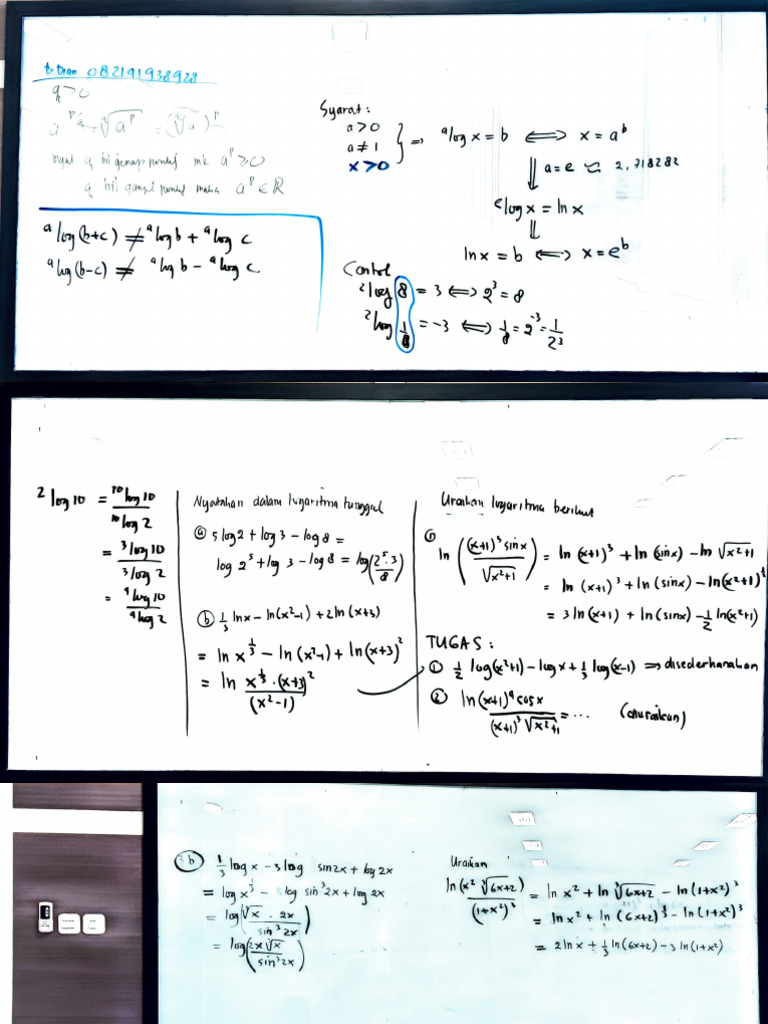 b Dian 082191938928
q > 0
a^(p/q) = ᑫ√(a^p) = (ᑫ√a)^p
q bil genap mk a^p ≥ 0
q bil ganjil maka a^p ∈ ℝ
ᵃlog(b+c) ≠ ᵃlog b + ᵃlog c
ᵃlog(b-c) ≠ ᵃlog b - ᵃlog c
Syarat :
a > 0
a ≠ 1
x > 0
} ⇒ ᵃlog x = b ⟺ x = a^b
⇓ a = e ≈ 2,718282
ᵉlog x = ln x
⇓
ln x = b ⟺ x = e^b
Contoh
²log 8 = 3 ⟺ 2³ = 8
²log 1/8 = -3 ⟺ 1/8 = 2^-3 = 1/2³
²log 10 = ¹⁰log 10 / ¹⁰log 2
= ³log 10 / ³log 2
= ᵃlog 10 / ᵃlog 2
Nyatakan dalam logaritma tunggal
ⓐ 5 log 2 + log 3 - log 8 =
log 2⁵ + log 3 - log 8 = log(2⁵·3/8)
ⓑ 1/3 ln x - ln(x²-1) + 2 ln(x+3)
= ln x^(1/3) - ln(x²-1) + ln(x+3)²
= ln x^(1/3)·(x+3)² / (x²-1)
Uraikan logaritma berikut
ln((x+1)³ sin x / √(x²+1)) = ln(x+1)³ + ln(sin x) - ln √(x²+1)
= ln(x+1)³ + ln(sin x) - ln(x²+1)^(1/2)
= 3 ln(x+1) + ln(sin x) - 1/2 ln(x²+1)
TUGAS :
① 1/2 log(x²+1) - log x + 1/3 log(x-1) ⇒ disederhanakan
② ln (x+1)⁴ cos x / (x+1)³ √(x²+1) = ... (diuraikan)
5b 1/3 log x - 3 log sin 2x + log 2x
= log x^(1/3) - log sin³ 2x + log 2x
= log(∛x · 2x / sin³ 2x)
= log(2x ∛x / sin³ 2x)
Uraikan
ln(x² ∛(6x+2)) / (1+x²)³ = ln x² + ln ∛(6x+2) - ln(1+x²)³
= ln x² + ln(6x+2)^(1/3) - ln(1+x²)³
= 2 ln x + 1/3 ln(6x+2) - 3 ln(1+x²)